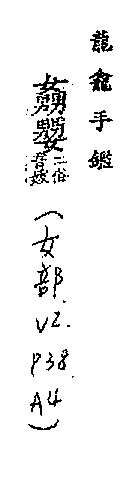 龍龕手鑑
二俗
音
(女部.V2.P38.A4)